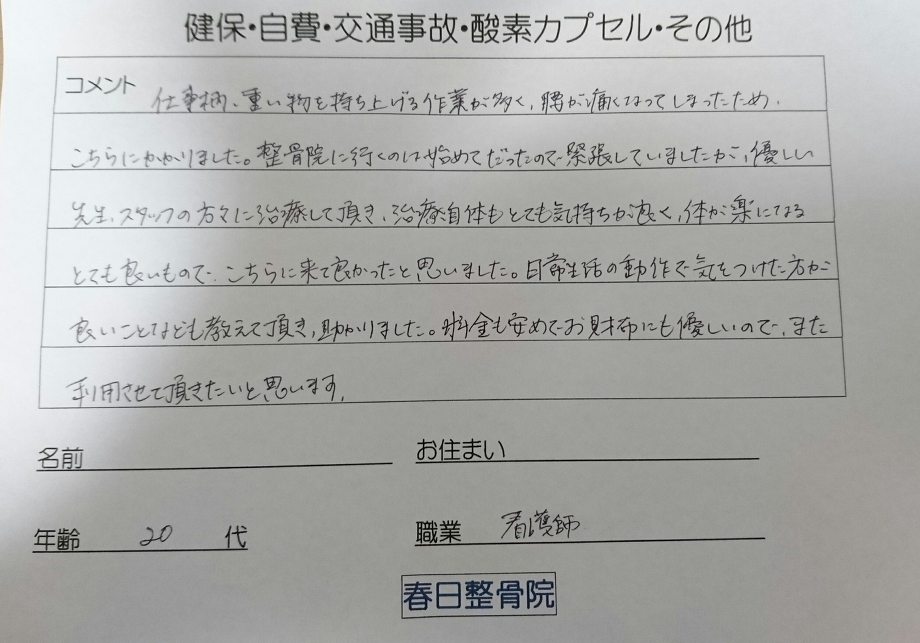 健保・自費・交通事故・酸素カプセル・その他
コメント 仕事柄、重い物を持ち上げる作業が多く、腰が痛くなってしまったため、
こちらにかかりました。整骨院に行くのは始めてだったので緊張していましたが、優しい
先生、スタッフの方々に治療して頂き、治療自体もとても気持ちが良く、体が楽になる
とても良いもので、こちらに来て良かったと思いました。日常生活の動作で気をつけた方が
良いことなども教えて頂き、助かりました。料金も安めでお財布にも優しいので、また
利用させて頂きたいと思います。
名前 お住まい
年齢 20 代 職業 看護師
春日整骨院